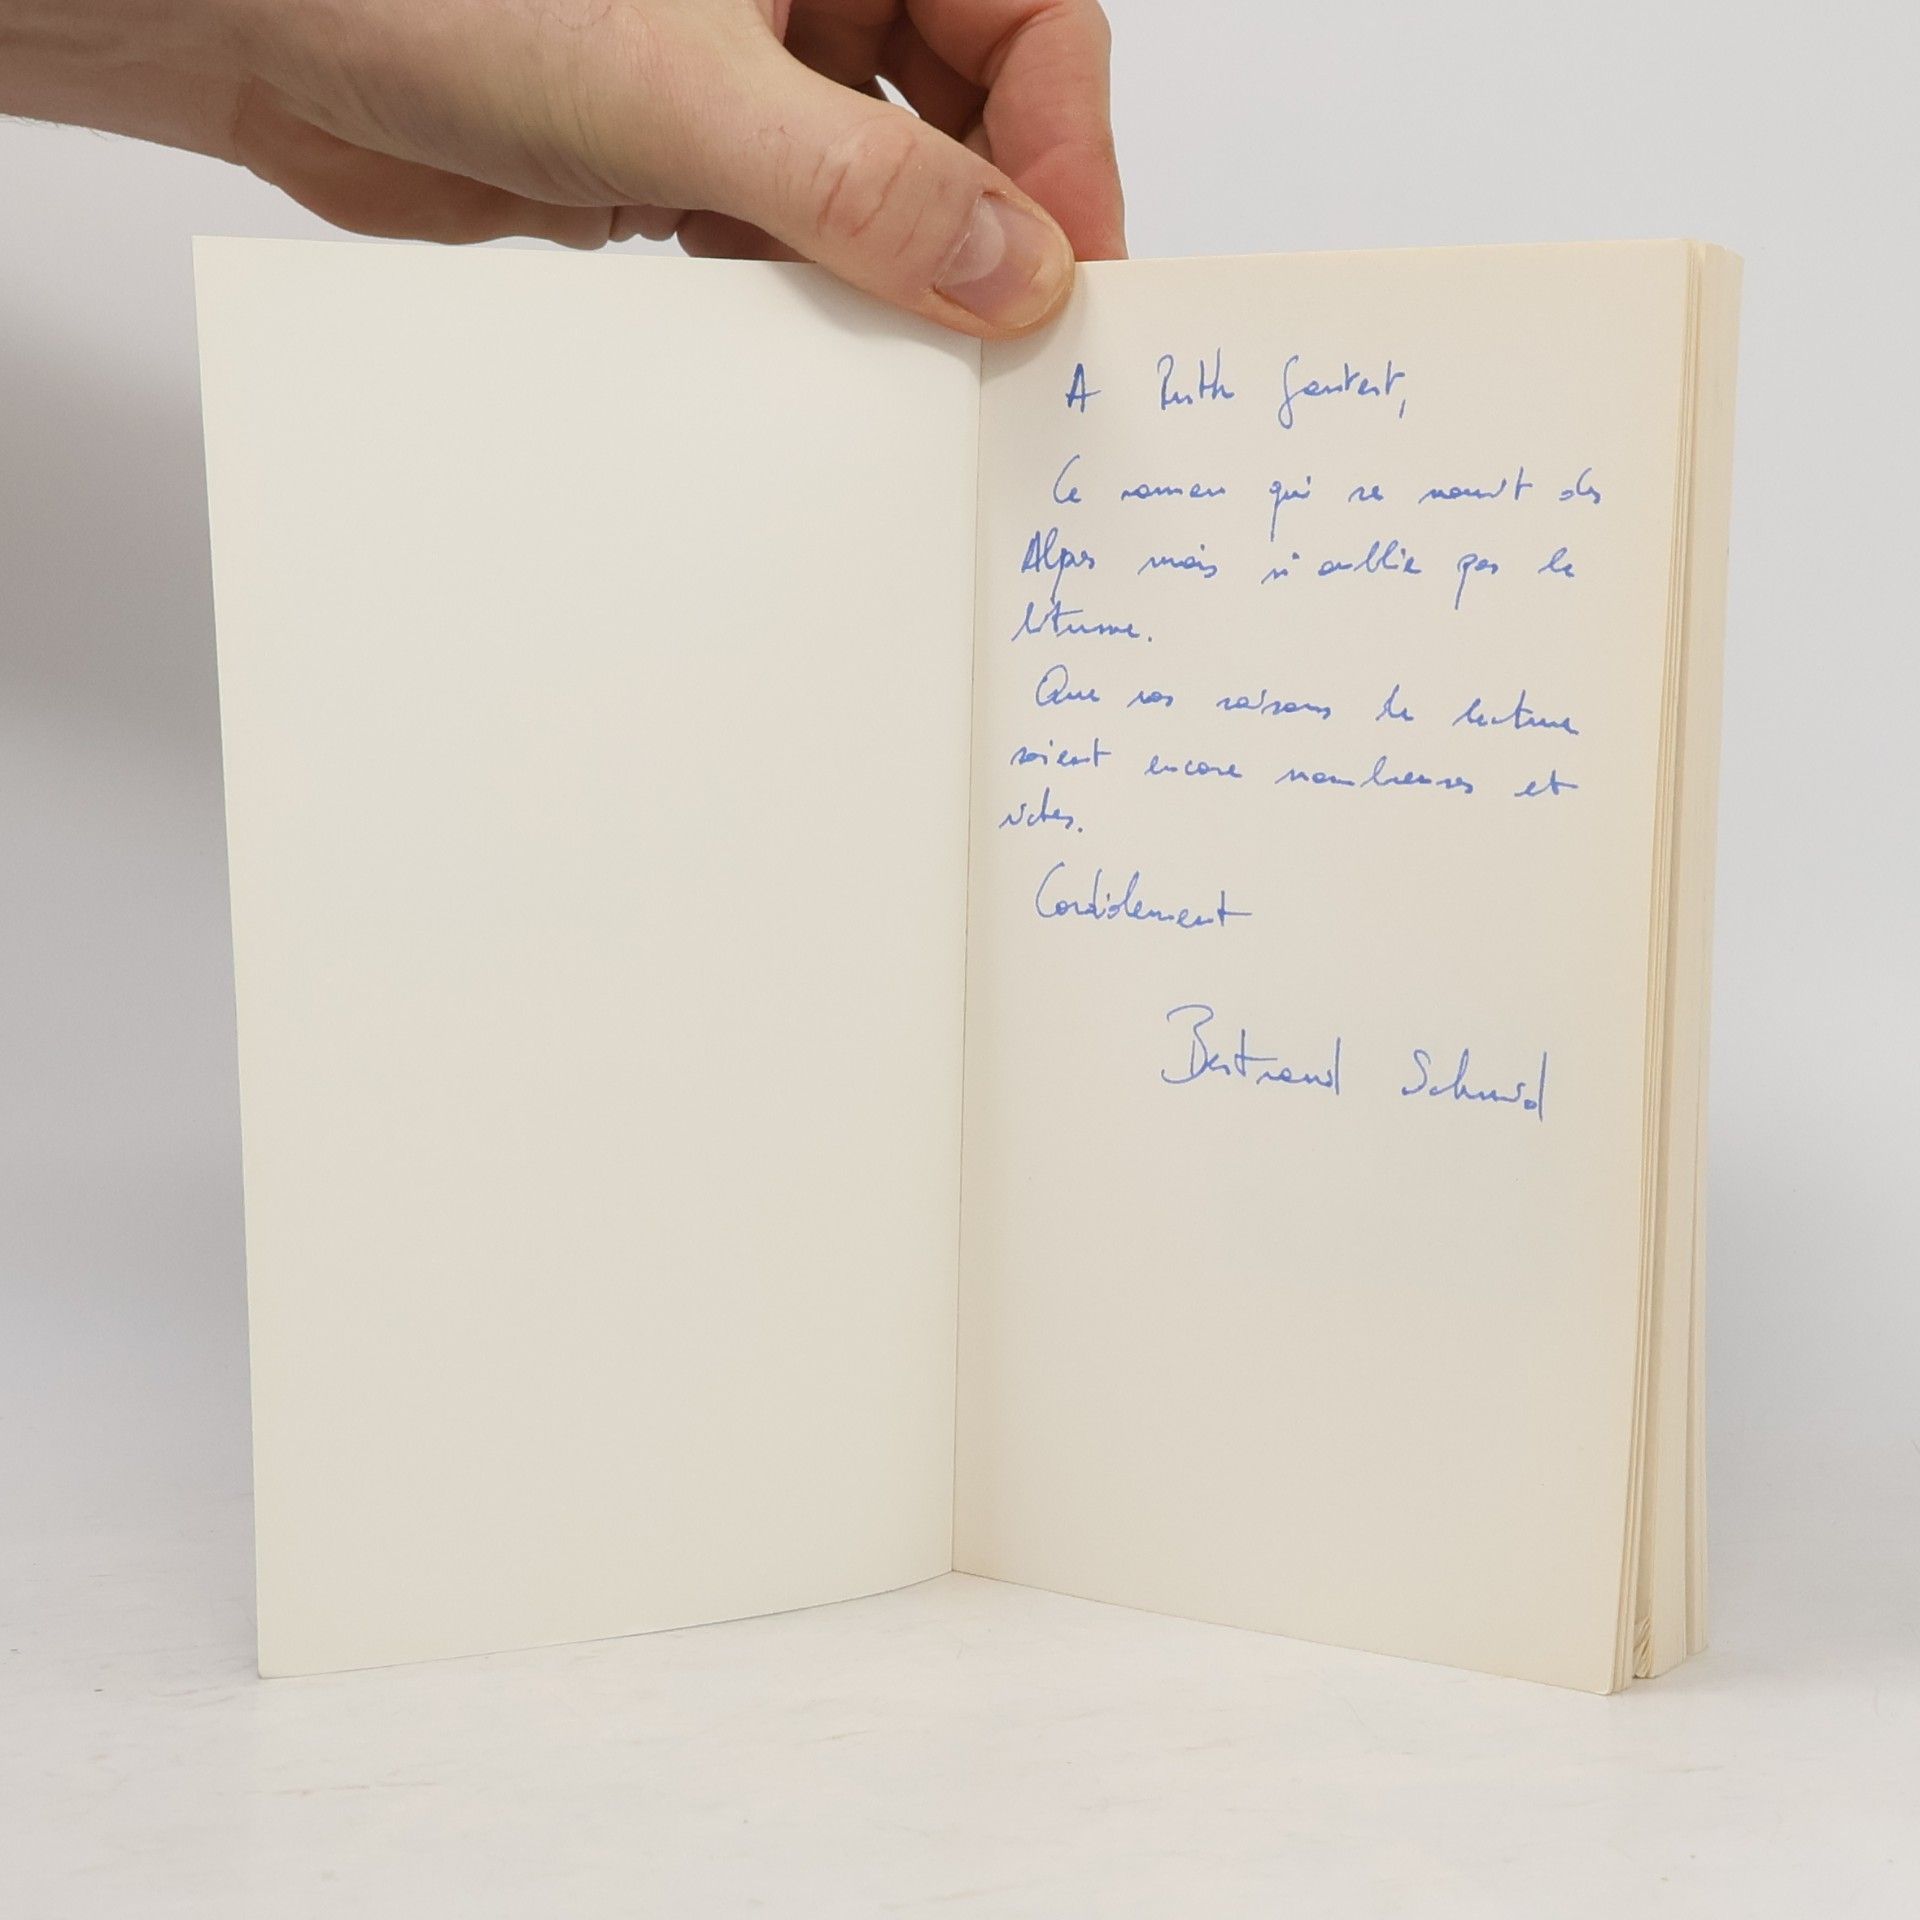 A Ruth
Ce roman qui se nourrit des
Alpes mais n'oublie pas le
bitume.
Que vos raisons de lecture
soient encore nombreuses et
riches.
Cordialement
Bertrand Schmid